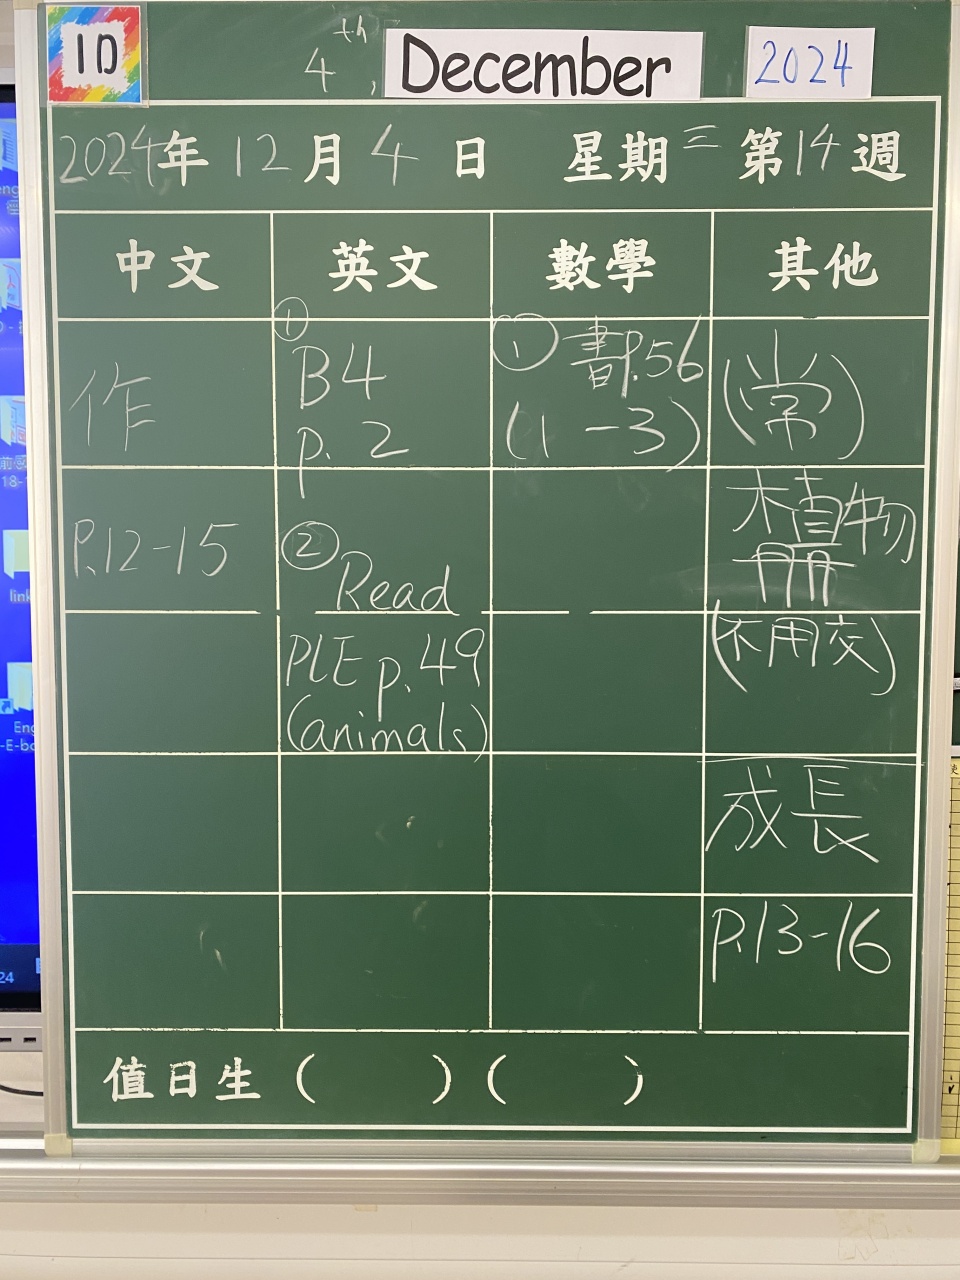 1D
4th, December 2024
2024年 12月 4日 星期三 第14週
中文 英文 數學 其他
作
P.12-15
①
B4
p. 2
②
Read
PLE p. 49
(animals)
① 書P.56
(1-3)
(常)
植物
冊
(不用交)
成長
P.13-16
值日生 ( ) ( )